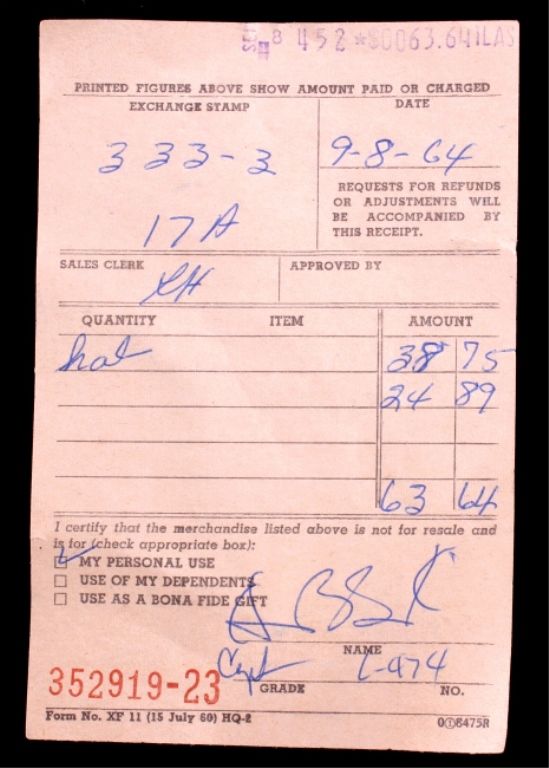 SEP 8 452 *$0063.64ILAS
PRINTED FIGURES ABOVE SHOW AMOUNT PAID OR CHARGED
EXCHANGE STAMP
DATE
333-3
9-8-64
17A
REQUESTS FOR REFUNDS
OR ADJUSTMENTS WILL
BE ACCOMPANIED BY
THIS RECEIPT.
SALES CLERK
APPROVED BY
QUANTITY ITEM AMOUNT
38 75
24 89
63 64
I certify that the merchandise listed above is not for resale and
is for (check appropriate box):
MY PERSONAL USE
USE OF MY DEPENDENTS
USE AS A BONA FIDE GIFT
NAME
Capt
352919-23
GRADE
NO.
Form No. XF 11 (15 July 60) HQ-2
8475R